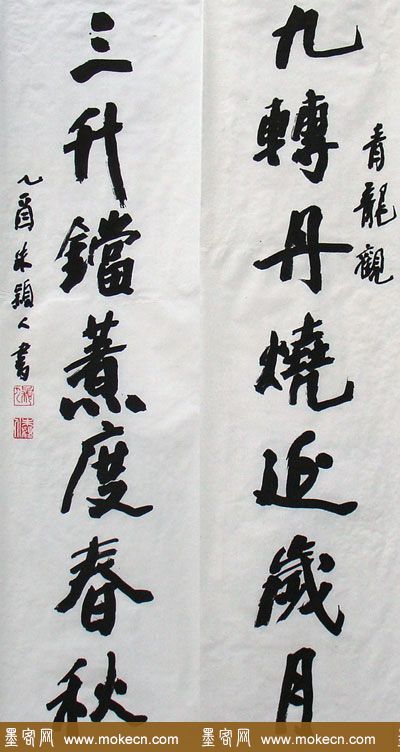 青龍觀
九轉丹燒近歲月
三升鐺煮度春秋
乙酉朱穎人書
墨客网 www.mokecn.com 墨客网 www.mokecn.com